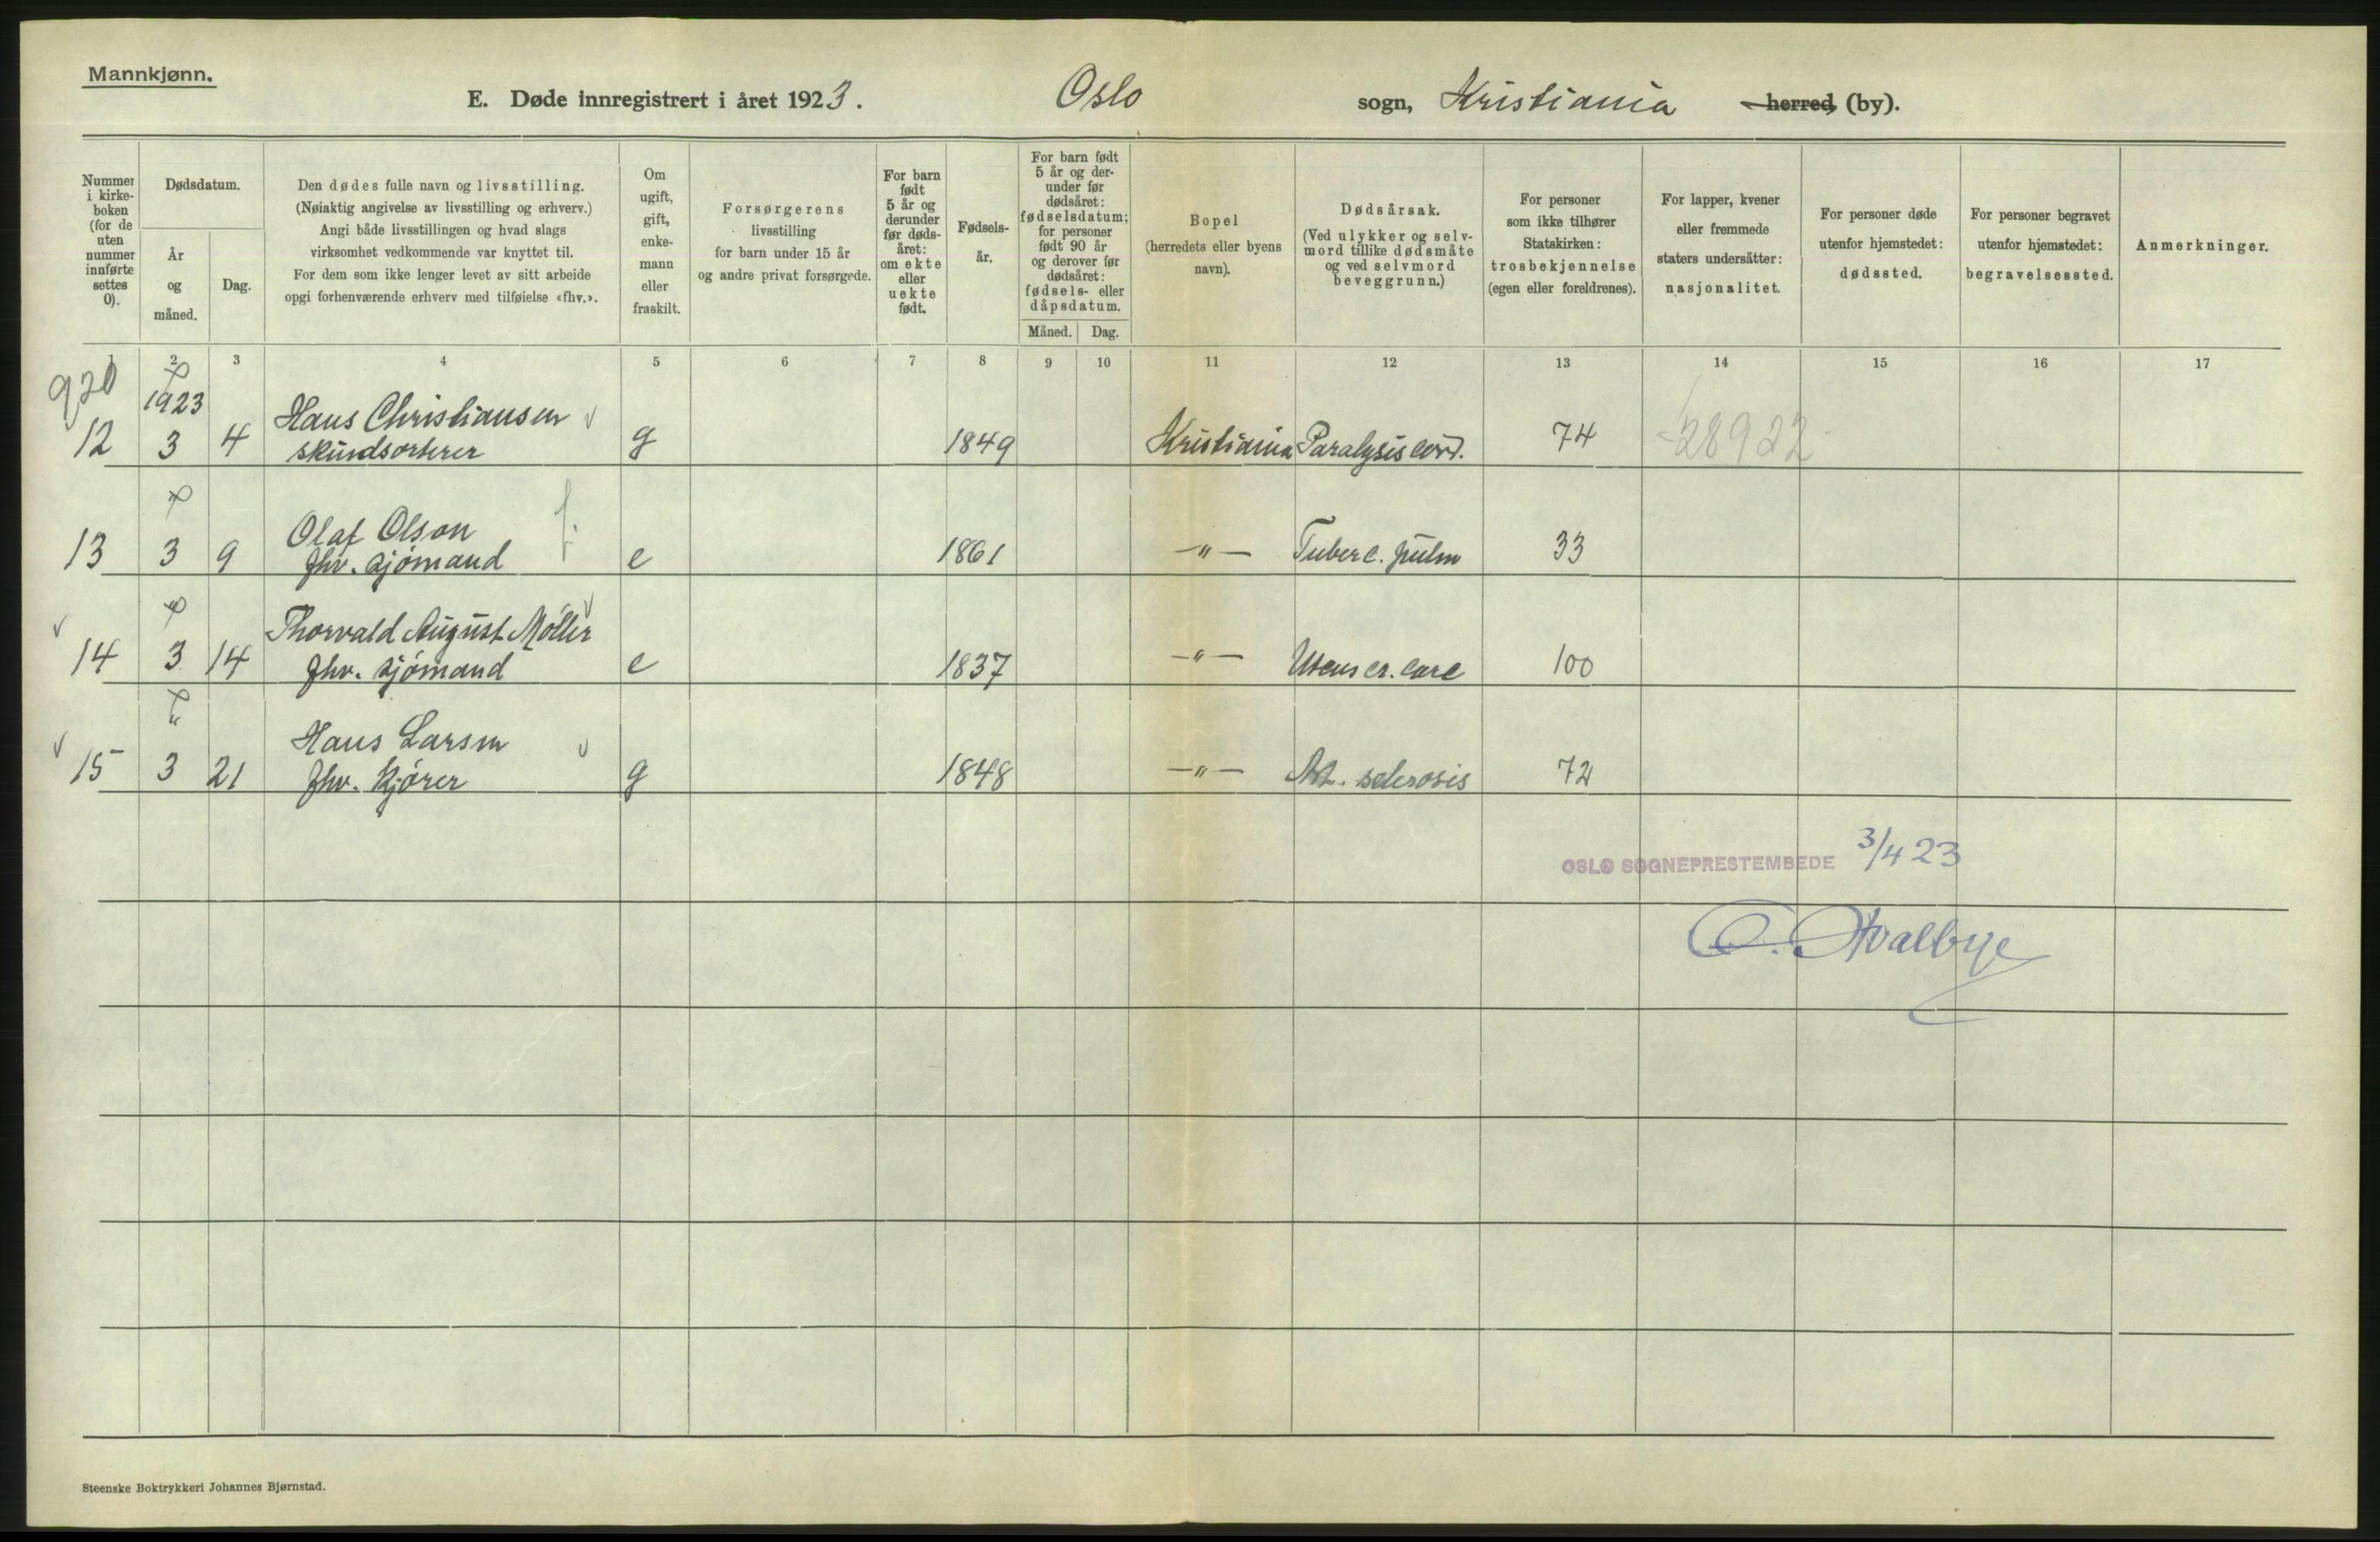 Mannkjønn.
E. Døde innregistrert i året 1923. Oslo sogn, Kristiania herred, (by).
Nummer i kirke-boken (for de uten nummer innførte settes 0).
Dødsdatum.
År og måned.
Dag.
Den dødes fulle navn og livsstilling.
(Nøiaktig angivelse av livsstilling og erhverv.)
Angi både livsstillingen og hvad slags
virksomhet vedkommende var knyttet til.
For dem som ikke lenger levet av sitt arbeide
opgi forhenværende erhverv med tilføielse «fhv.».
Om ugift, gift, enke-mann eller fraskilt.
Forsørgerens
livsstilling
for barn under 15 år
og andre privat forsørgede.
For barn født 5 år og derunder før døds-året: om ekte eller uekte født.
Fødsels-år.
For barn født 5 år og der-under før dødsåret: fødselsdatum; for personer født 90 år og derover før dødsåret: fødsels- eller dåpsdatum.
Måned. Dag.
Bopel
(herredets eller byens
navn).
Dødsårsak.
(Ved ulykker og selv-
mord tillike dødsmåte
og ved selvmord
beveggrunn.)
For personer
som ikke tilhører
Statskirken:
trosbekjennelse
(egen eller foreldrenes).
For lapper, kvener
eller fremmede
staters undersåtter:
nasjonalitet.
For personer døde
utenfor hjemstedet:
dødssted.
For personer begravet
utenfor hjemstedet:
begravelsessted.
Anmerkninger.
1 2 3 4 5 6 7 8 9 10 11 12 13 14 15 16 17
920 1923 Hans Christiansen
12 3 4 skindsorterer g 1849 Kristiania Paralysis cord. 74 28922
Olaf Olson
13 3 9 fhv. sjömand e 1861 —"— Tuberc. pulm 33
Thorvald August Möller
14 3 14 fhv. sjömand e 1837 —"— 100
Hans Larsen
15 3 21 fhv. kjörer g 1848 —"— Art. sclerosis 72
OSLO SOGNEPRESTEMBEDE 3/4 23
Steenske Boktrykkeri Johannes Bjørnstad.